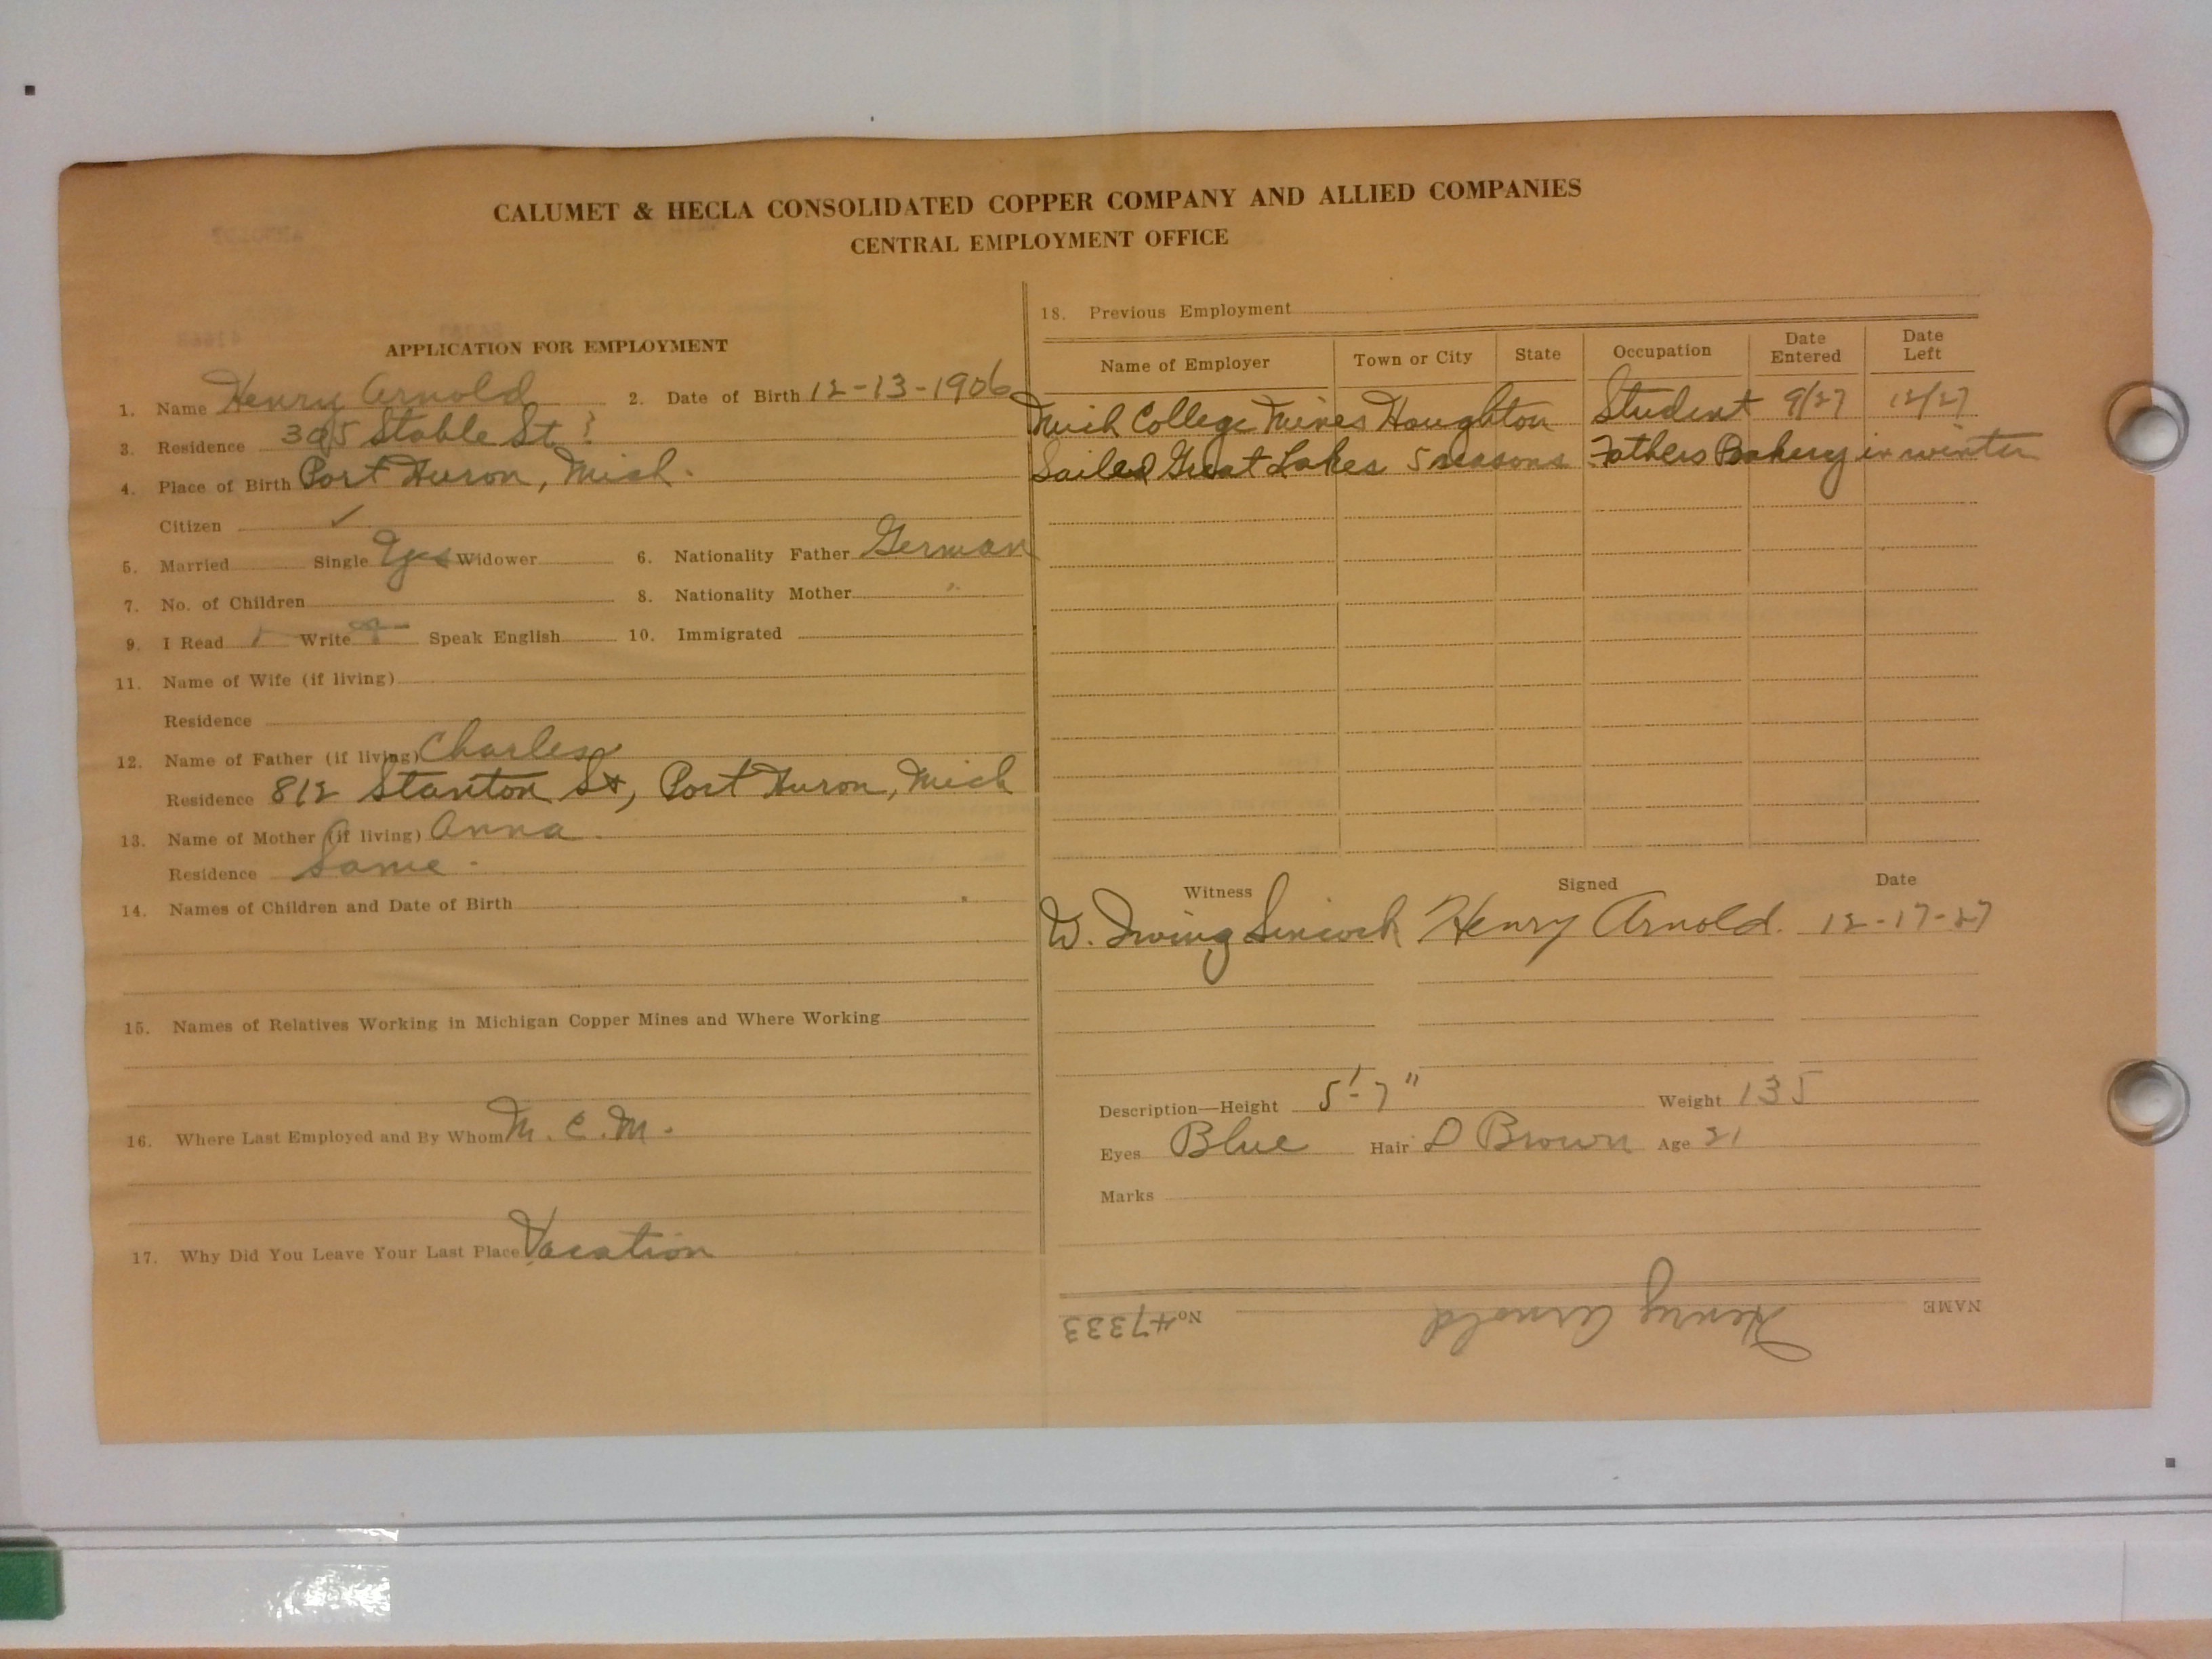 CALUMET & HECLA CONSOLIDATED COPPER COMPANY AND ALLIED COMPANIES
CENTRAL EMPLOYMENT OFFICE
APPLICATION FOR EMPLOYMENT
1. Name Henry Arnold 2. Date of Birth 12-13-1906
3. Residence 395 Stable St ?
4. Place of Birth Port Huron, Mich.
Citizen ✓
5. Married Single Yes Widower 6. Nationality Father German
7. No. of Children 8. Nationality Mother "
9. I Read Write Speak English 10. Immigrated
11. Name of Wife (if living)
Residence
12. Name of Father (if living) Charles
Residence 812 Stanton St, Port Huron, Mich
13. Name of Mother (if living) Anna
Residence Same -
14. Names of Children and Date of Birth
15. Names of Relatives Working in Michigan Copper Mines and Where Working
16. Where Last Employed and By Whom M. C. M.
17. Why Did You Leave Your Last Place Vacation
18. Previous Employment
Name of Employer Town or City State Occupation Date Entered Date Left
Mich College Mines Houghton Student 9/27 12/27
Sailed Great Lakes 5 seasons Fathers Bakery in winter
Witness Signed Date
W. Irving Sincock Henry Arnold. 12-17-27
Description—Height 5'-7" Weight 135
Eyes Blue Hair D Brown Age 21
Marks
NAME Henry Arnold No. #7333